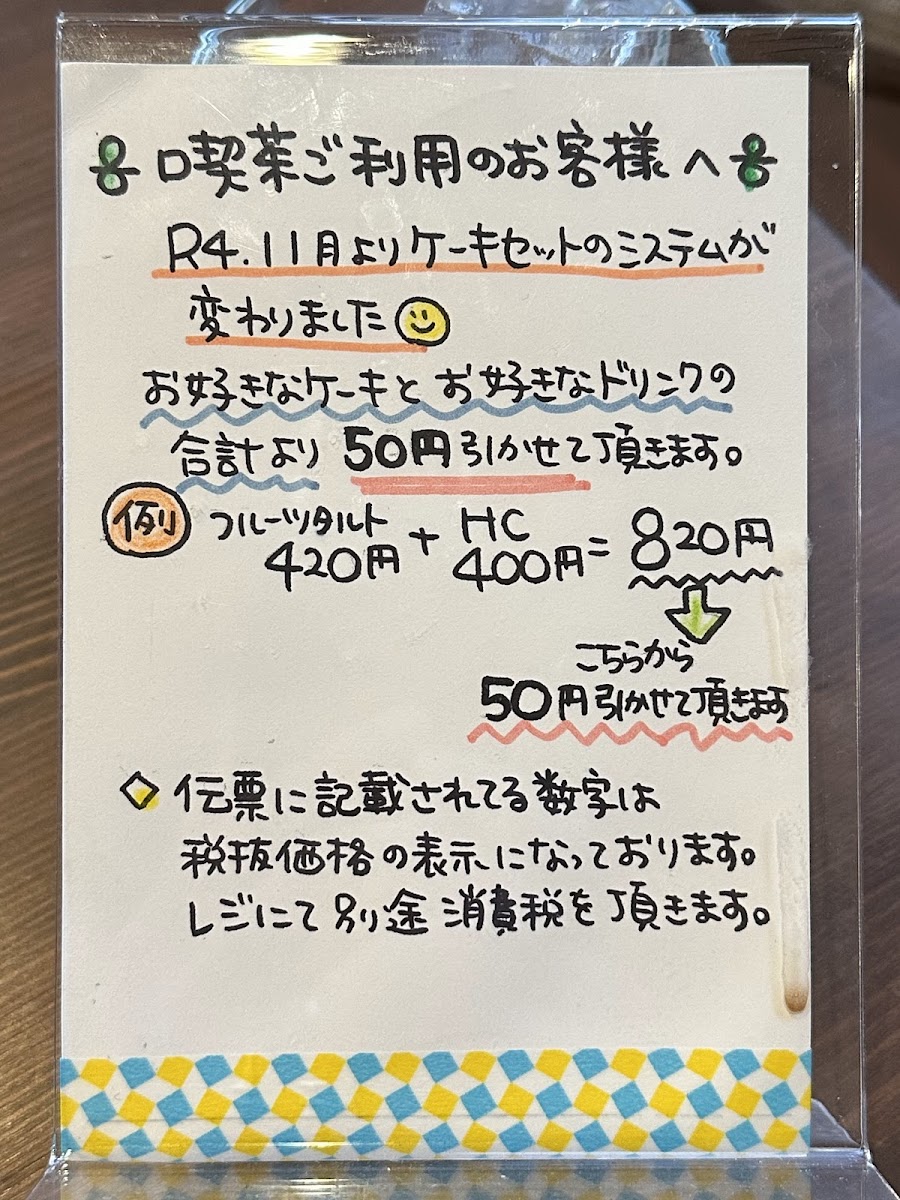 喫茶ご利用のお客様へ
R4.11月よりケーキセットのシステムが
変わりました
お好きなケーキとお好きなドリンクの
合計より 50円引かせて頂きます。
例 フルーツタルト 420円 + HC 400円 = 820円
こちらから
50円引かせて頂きます
◇ 伝票に記載されてる数字は
税抜価格の表示になっております。
レジにて別途消費税を頂きます。